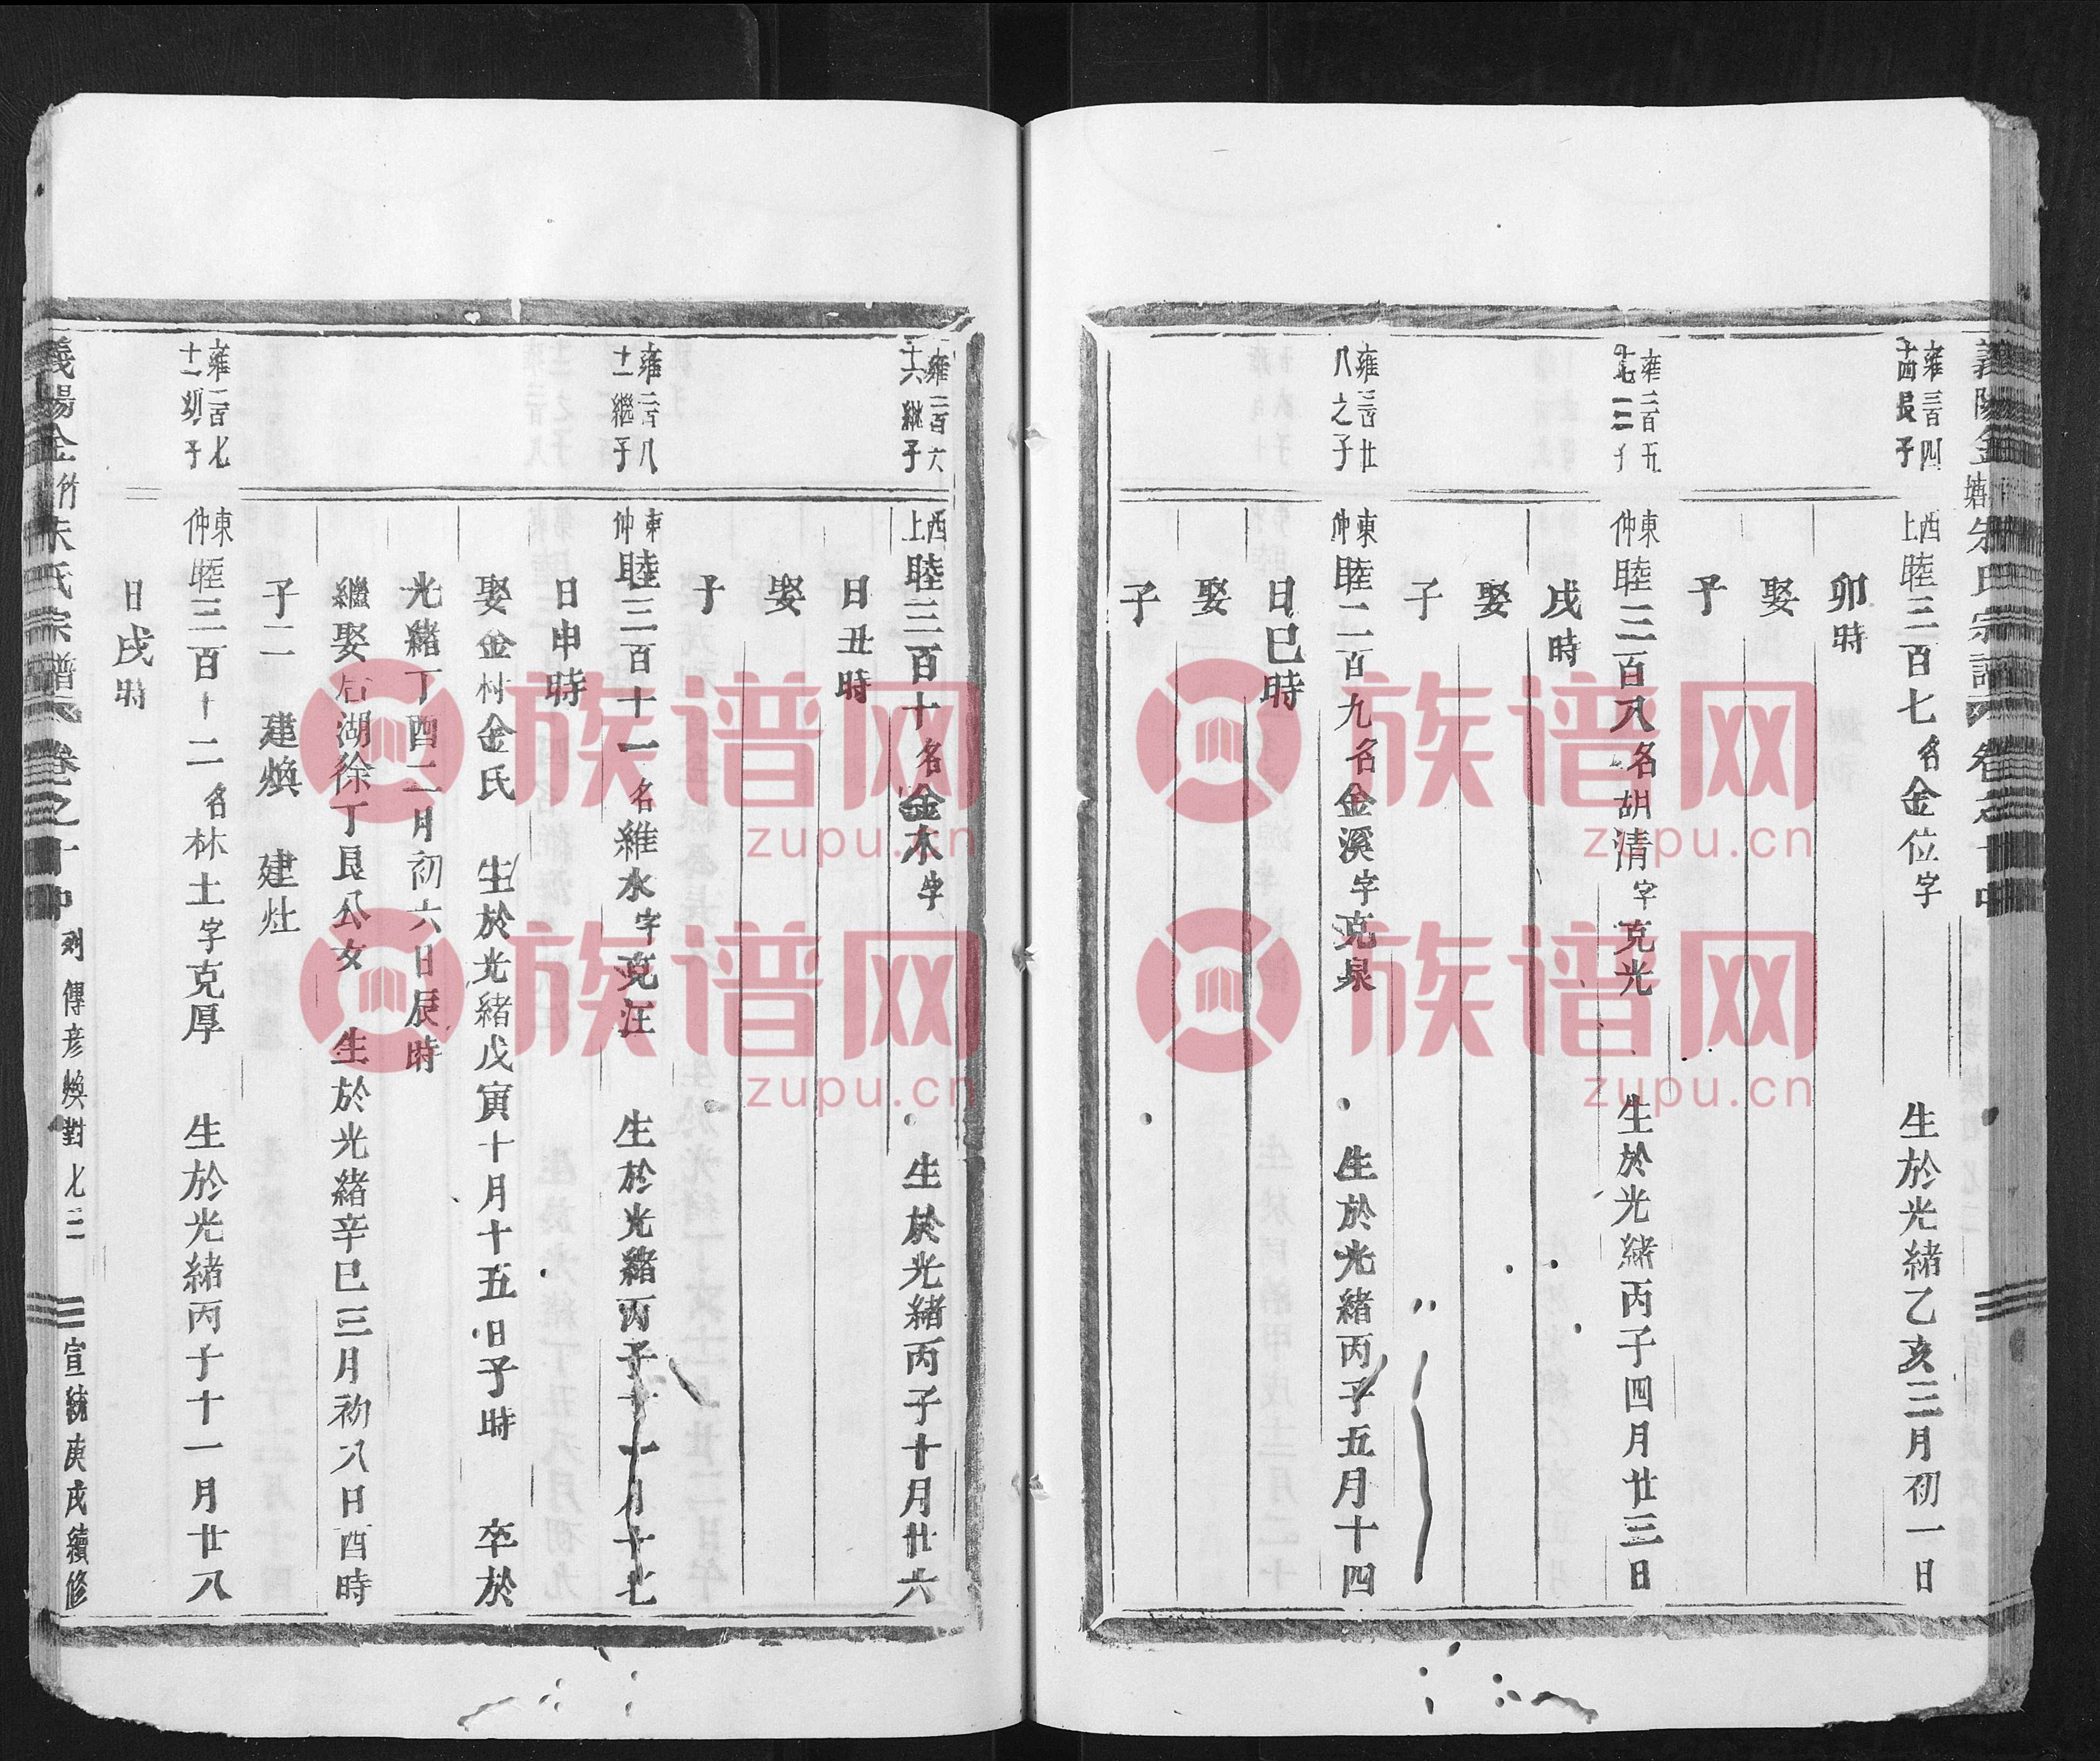 義陽金塘朱氏宗譜 卷之十中
雍三百四
十四長子
西上睦三百七名金位字 生於光緒乙亥三月初一日
卯時
娶
子
雍二百五
十七三子
東仲睦三百八名胡清字克光 生於光緒丙子四月廿三日
戌時
娶
子
雍三百廿
八之子
東仲睦三百九名金溪字克泉 生於光緒丙子五月十四
日巳時
娶
子
雍二百六
十六繼子
西上睦三百十名金木字 生於光緒丙子十月廿六
日丑時
娶
子
雍二百八
十一繼子
東仲睦三百十一名維水字克汪 生於光緒丙子十月十七
日申時
娶金村金氏 生於光緒戊寅十月十五日子時 卒於
光緒丁酉二月初六日辰時
繼娶后湖徐丁良公女 生於光緒辛巳三月初八日酉時
子二 建煥 建灶
雍二百七
十一幼子
東仲睦三百十二名林土字克厚 生於光緒丙子十一月廿八
日戌時
義陽金竹朱氏宗譜 卷之十中 列傳彥煥對 七三 宣統庚戌續修
族谱网 族谱网
zupu.cn zupu.cn
族谱网 族谱网
zupu.cn zupu.cn